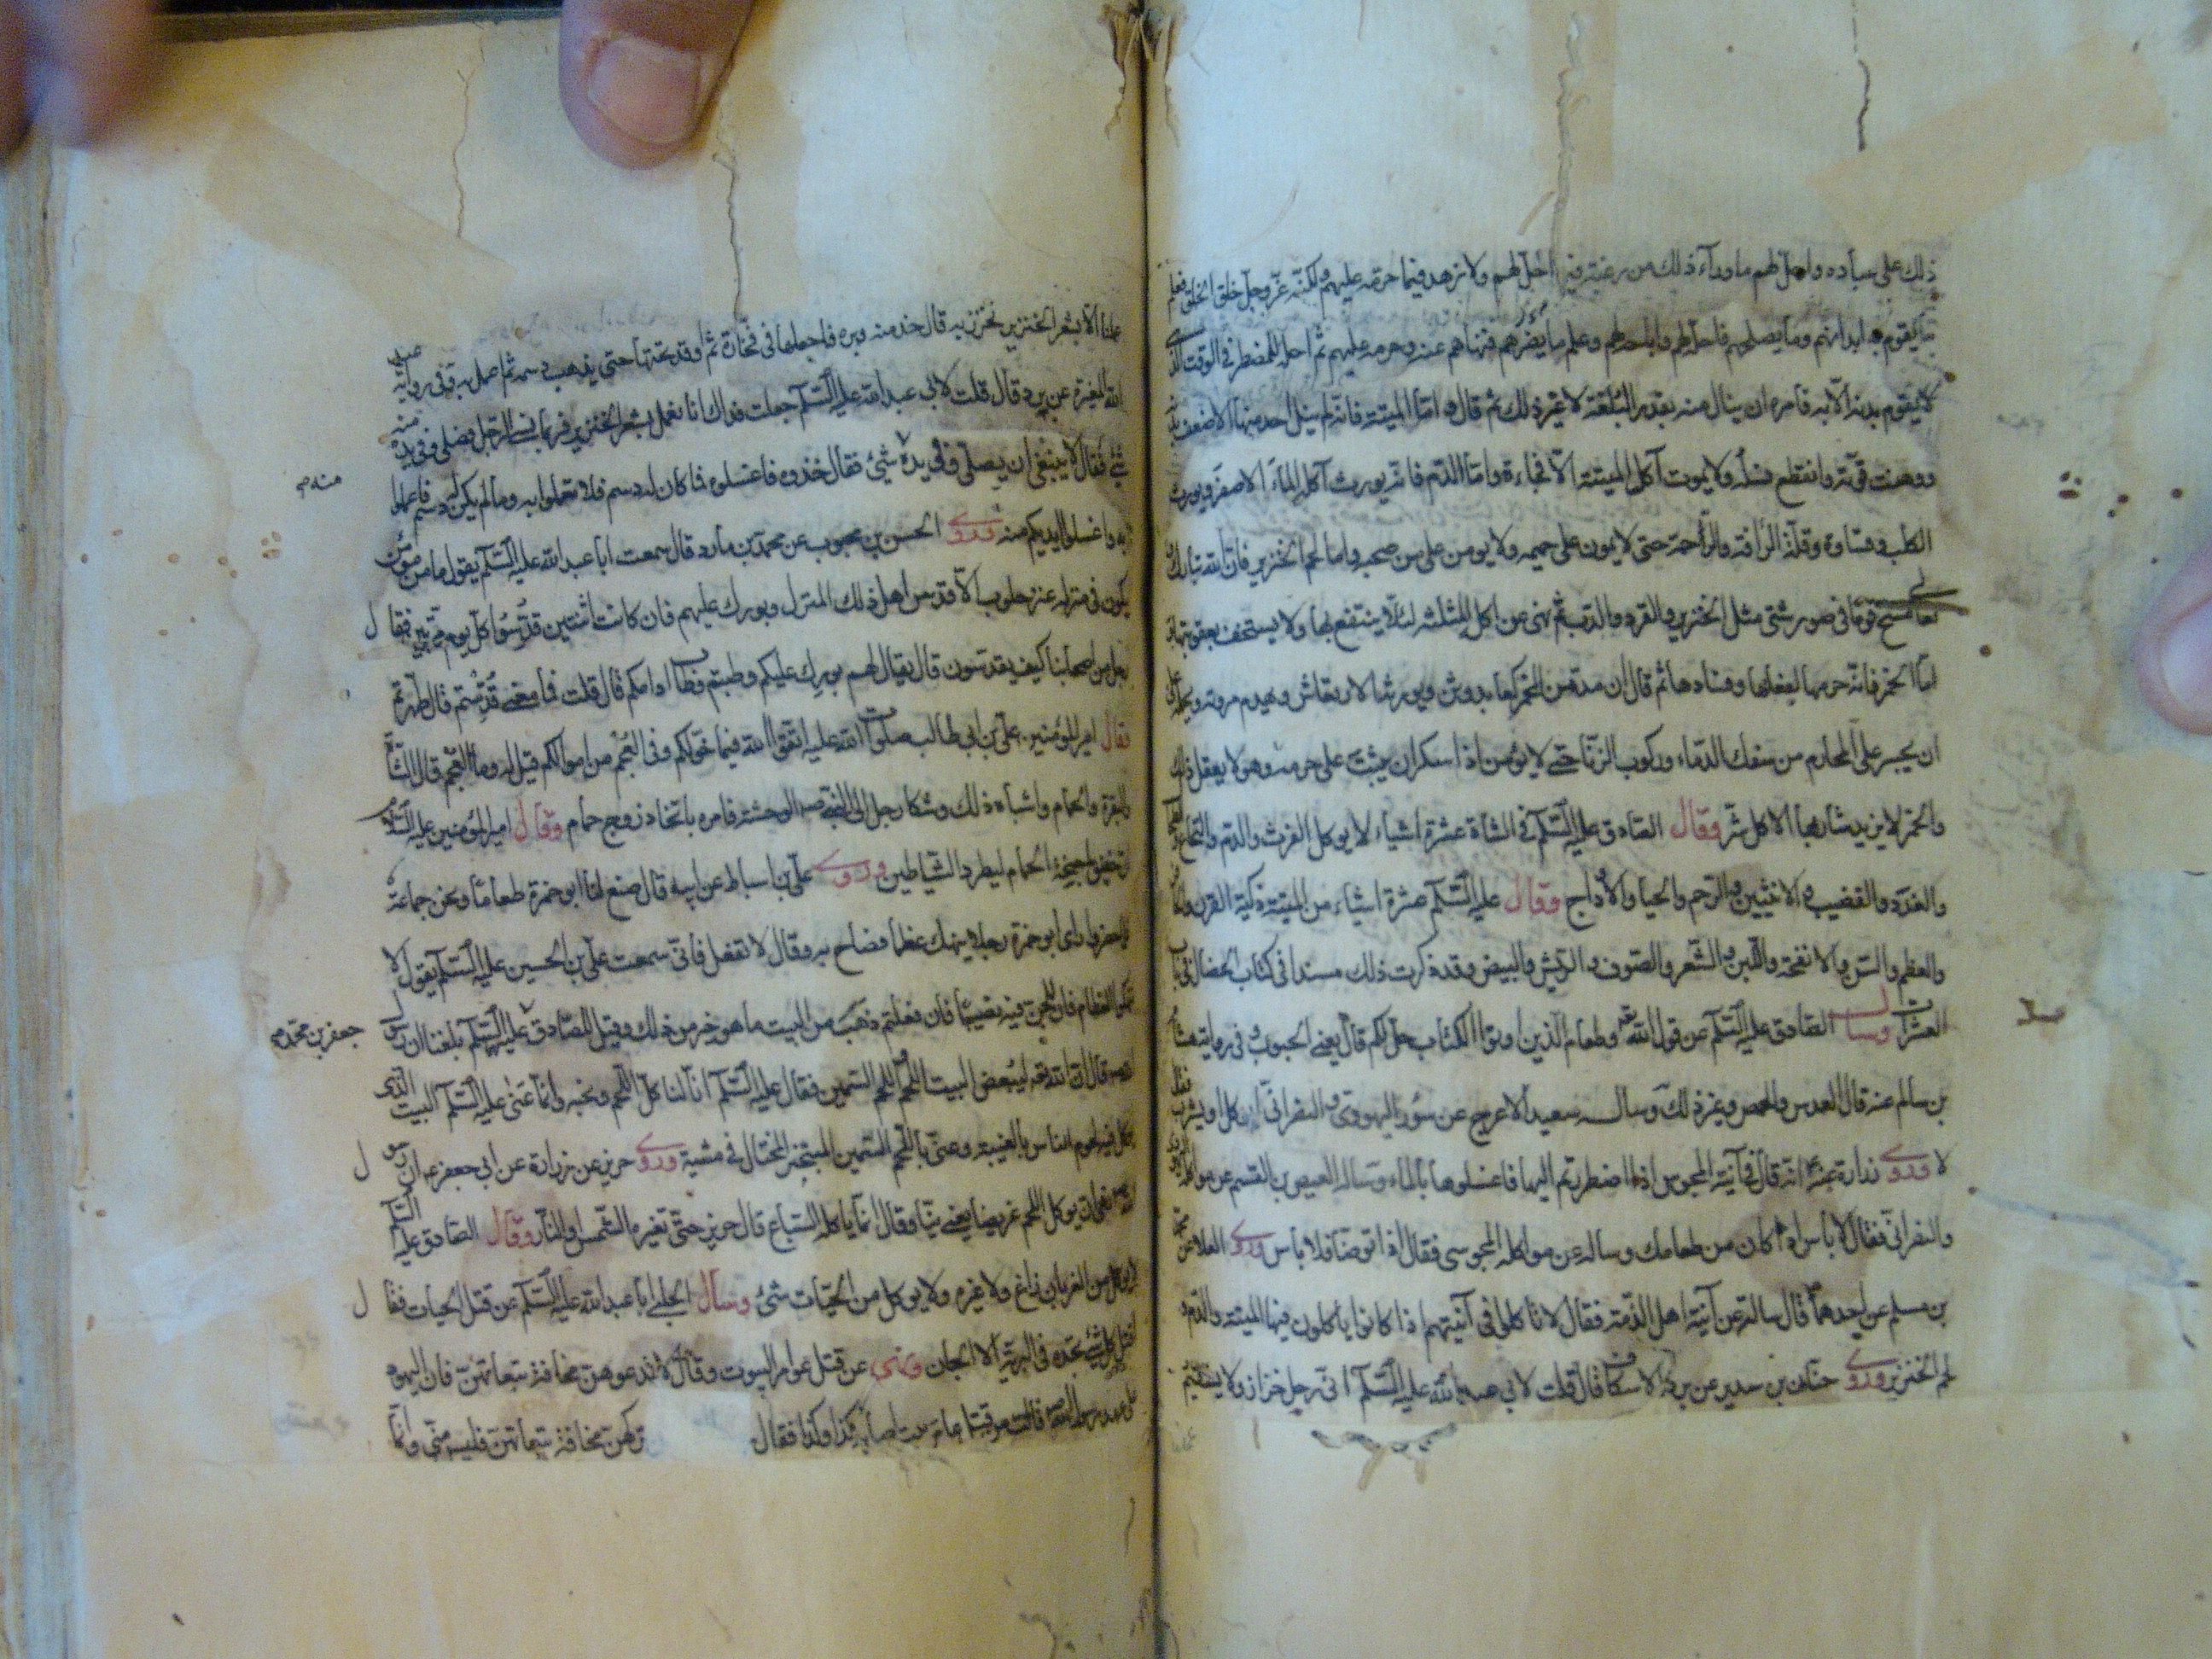 ذلك على عباده واحل لهم ماوراء ذلك من رغبة فيما احل لهم ولا زهد فيما حرمه عليهم ولكنه عز وجل خلق الخلق فعلم
ما يقوم به ابدانهم وما يصلحهم فاحله لهم واباحه لهم وعلم ما يضرهم فنهاهم عنه وحرمه عليهم ثم احله للمضطر في الوقت الذي
لا يقوم بدنه الا به فامره ان ينال منه بقدر البلغة لا غير ذلك ثم قال واما الميتة فانه لم ينل احد منها الا ضعف بدنه
ووهنت قوته وانقطع نسله ولا يموت آكل الميتة الا فجاءة واما الدم فانه يورث آكله الماء الاصفر ويورث
الكلب وقساوة وقلة الرأفة والرحمة حتى لا يومن على حميمه ولا يومن على من صحبه واما لحم الخنزير فان الله تبارك
تعالى مسخ قوما في صور شتى مثل الخنزير والقرد والدب ثم نهى عن اكل المثلة لئلا ينتفع بها ولا يستخف بعقوبتها و
اما الخمر فانه حرمها لفعلها وفسادها ثم قال ان مدمن الخمر كعابد وثن ويورثه الارتعاش ويهدم مروته ويحمله على
ان يجسر على المحارم من سفك الدماء وركوب الزنا حتى لا يؤمن اذا سكر ان يثبت على حرمه وهو لا يعقل ذلك
والخمر لا يزيد شاربها الا كل شر وقال الصادق عليه السلم في الشاة عشرة اشياء لا يوكل الفرث والدم والنخاع والطحال
والغدد والقضيب والانثيين والرحم والحيا والاوداج وقال عليه السلم عشرة اشياء من الميتة ذكية القرن والحافر
والعظم والسن والانفحة واللبن والشعر والصوف والريش والبيض وقد ذكرت ذلك مسندا في كتاب الخصال في باب
العشرات وسأل الصادق عليه السلم عن قول الله تعالى وطعام الذين اوتوا الكتاب حل لكم قال يعني الحبوب وفي رواية هشام
بن سالم عنه قال العدس والحمص وغير ذلك وساله سعيد الاعرج عن سؤر اليهودي والنصراني ايؤكل او يشرب فقال
لا وروى زرارة عنه انه قال في آنية المجوس اذا اضطررتم اليها فاغسلوها بالماء وساله العيص بن القسم عن مواكلة اليهودي
والنصراني فقال لا بأس اذا كان من طعامك وساله عن مواكلة المجوسي فقال اذا توضأ فلا بأس وروى العلا عن محمد
بن مسلم عن احدهما قال سالته عن آنية اهل الذمة فقال لا تاكلوا في آنيتهم اذا كانوا ياكلون فيها الميتة والدم و
لحم الخنزير وروى حنان بن سدير عن برد الاسكاف قال قلت لابي عبد الله عليه السلم اني رجل خراز ولا يستقيم
عملنا الا بشعر الخنزير نخرز به قال خذ منه وبره فاجعلها في فخارة ثم اوقد تحتها حتى يذهب دسمه ثم اعمل به وفي رواية عبد
الله المغيرة عن برد قال قلت لابي عبد الله عليه السلم جعلت فداك انا نعمل بشعر الخنزير فربما نسي الرجل فصلى وفي يده منه
شيء فقال لا ينبغي ان يصلي وفي يده شيء فقال خذوه فاغسلوه فما كان له دسم فلا تعملوا به وما لم يكن له دسم فاعملوا
منه صح
به واغسلوا ايديكم منه وروى الحسن بن محبوب عن محمد بن مارد قال سمعت ابا عبد الله عليه السلم يقول ما من مؤمن
يكون في منزله عنز حلوب الا قدس اهل ذلك المنزل وبورك عليهم فان كانت اثنتين قدسوا كل يوم مرتين فقال
رجل من اصحابنا كيف يقدسون قال يقال لهم بورك عليكم وطبتم وطاب ادامكم قال قلت فما معنى قدستم قال طهرتم
وقال امير المؤمنين علي بن ابي طالب صلوات الله عليه اتقوا الله فيما خولكم وفي العجم من اموالكم قيل له وما العجم قال الشاة
والبقرة والحمام واشباه ذلك وشكا رجل الى النبي ص الوحشة فامره باتخاذ زوج حمام وقال امير المؤمنين عليه السلم
ان حفيف اجنحة الحمام ليطرد الشياطين وروى علي بن اسباط عن ابيه قال صنع لنا ابو حمزة طعاما ونحن جماعة
فلما حضروا راى ابو حمزة رجلا ينهك عظما فصاح به وقال لا تفعل فاني سمعت علي بن الحسين عليه السلم يقول لا
تنهكوا العظام فان للجن فيه نصيبا فان فعلتم ذهب من البيت ما هو خير من ذلك وقيل للصادق عليه السلم بلغنا ان رسول
جعفر بن محمد صح
الله ص قال ان الله تعالى ليبغض البيت اللحم واللحم السمين فقال عليه السلم انا لنا كل اللحم ونحبه وانما عنى عليه السلم البيت الذي
يوكل فيه لحوم الناس بالغيبة وعنى باللحم السمين المتبختر المختال في مشيته وروى حريز عن زرارة عن ابي جعفر ع ان رسول
الله ص نهى ان يوكل اللحم غريضا يعني نيا وقال انما ياكله السباع قال حريز حتى تغيره الشمس او النار وقال الصادق عليه السلم
لا يوكل من الغربان زاغ ولا غيره ولا يوكل من الحيات شيء وسأل الحلبي ابا عبد الله عليه السلم عن قتل الحيات فقال
اقتل كل شيء تجده في البرية الا الجان ونهى عن قتل عوامر البيوت وقال لا تدعوهن مخافة تبعاتهن فان اليهود
على عهد رسول الله ص قالت من قتل عامر بيت اصابه كذا وكذا فقال تركهن مخافة تبعاتهن فليس مني وانما